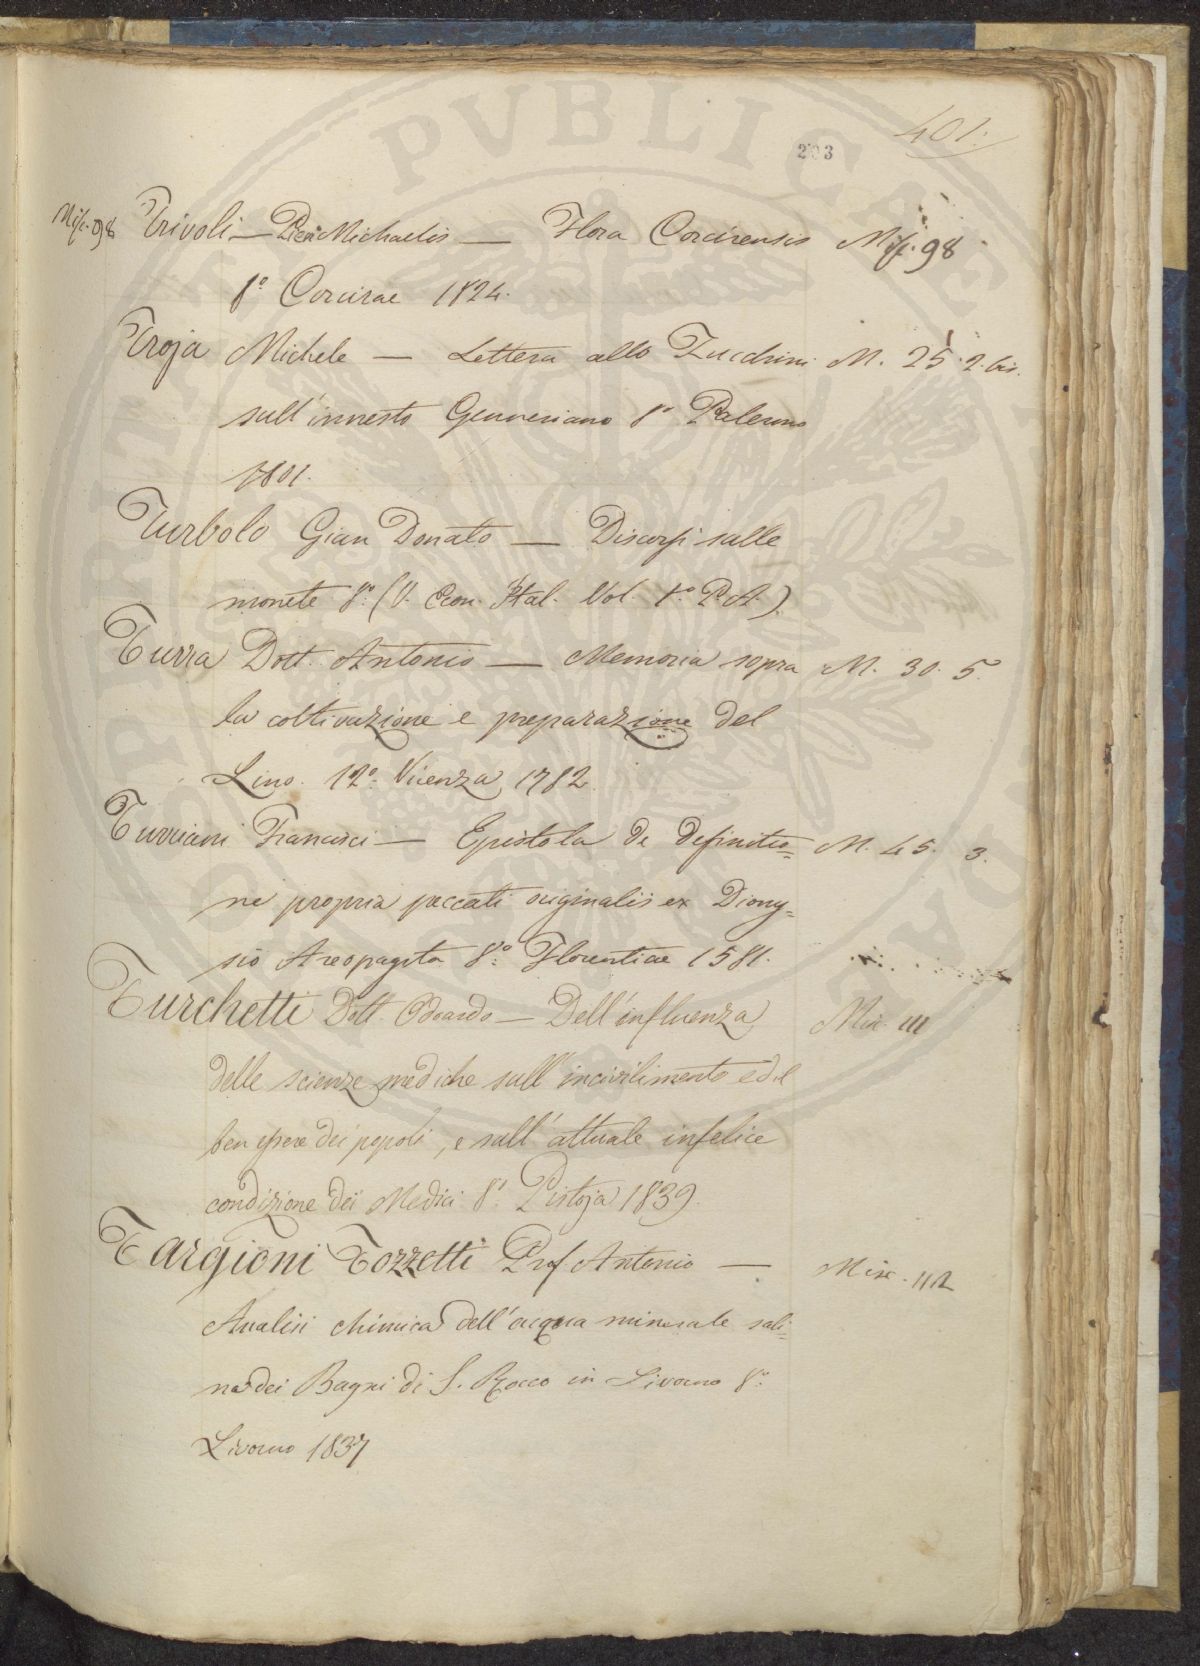 401.
203
Misc. 98 Trivoli — Pieri Michaelis — Flora Corcirensis Misc. 98
8.° Corcirae 1824.
Troja Michele — Lettera allo Zucchini M. 25. 2. bis.
sull'innesto Genneriano 8° Palermo
1801.
Turbolo Gian Donato — Discorsi sulle
monete 8.° (V. Econ. Ital. Vol. 1.° P. A.)
Turra Dott. Antonio — Memoria sopra M. 30. 5.
la coltivazione e preparazione del
Lino. 12.° Vicenza 1782.
Turriani Francisci — Epistola de definitio= M. 45. 3.
ne propria peccati originalis ex Diony=
sio Areopagita 8.° Florentiae 1581.
Turchetti Dott. Odoardo — Dell'influenza Misc. 111
delle scienze mediche sull'incivilimento ed il
ben essere dei popoli, e sull'attuale infelice
condizione dei Medici 8.° Pistoja 1839.
Targioni Tozzetti Prof Antonio — Misc. 112
Analisi chimica dell'acqua minerale sali=
na dei Bagni di S. Rocco in Livorno 8.°
Livorno 1837